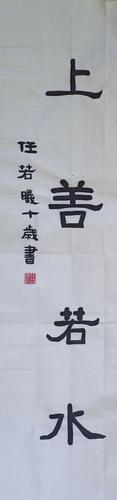 上善若水
任若曦十歲書